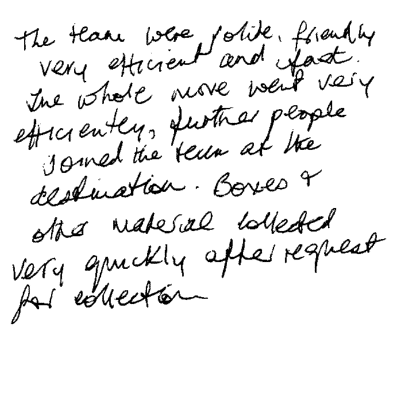 The team were polite, friendly
very efficient and fast.
The whole move went very
efficiently, further people
joined the team at the
destination. Boxes +
other material collected
very quickly after request
for collection